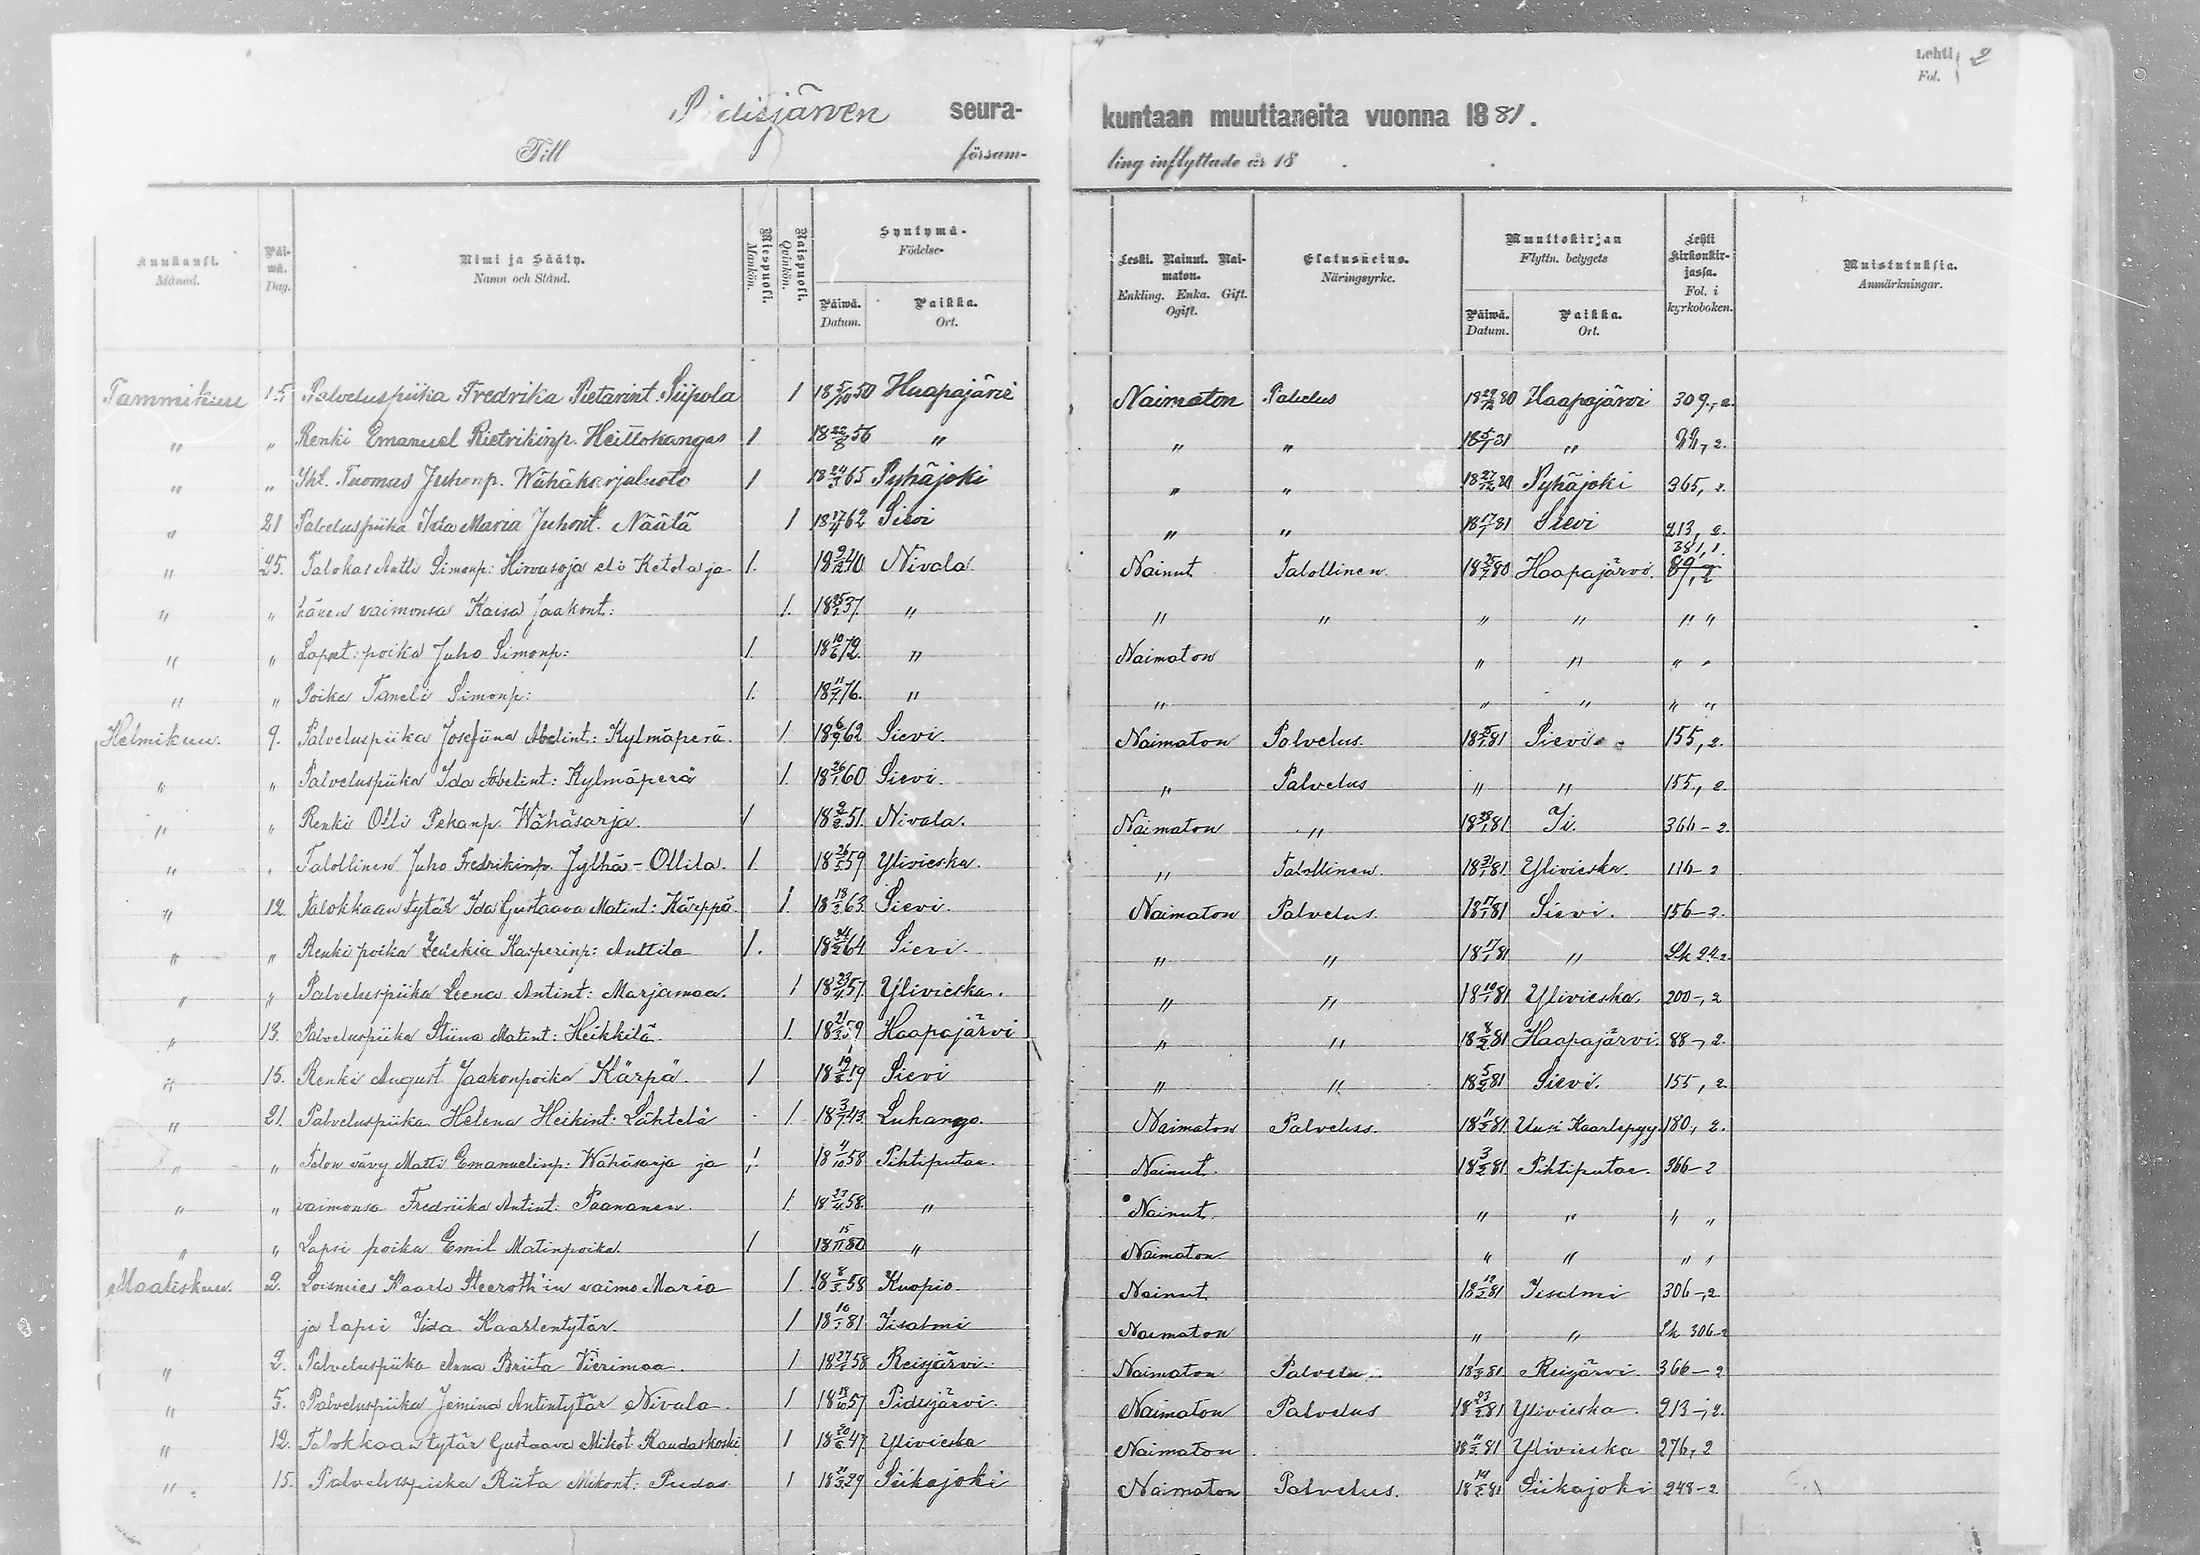 Lehti 2
Fol.
Pidisjärven seura- kuntaan muuttaneita vuonna 1881.
Till försam- ling inflyttade år 18 .
Kuukausi. Päi-wä. Nimi ja Sääty. Miespuoli. Naispuoli. Syntymä- Leski. Nainut. Nai-maton. Elatuskeino. Muuttokirjan Lehti Kirkonkir-jassa. Muistutuksia.
Månad. Dag. Namn och Stånd. Mankön. Qvinkön. Födelse- Enkling. Enka. Gift. Ogift. Näringsyrke. Flyttn. betygets Fol. i kyrkoboken. Anmärkningar.
Päiwä. Paikka. Päiwä. Paikka.
Datum. Ort. Datum. Ort.
Tammikuu 15 Palveluspiika Fredrika Pietarint. Siipola 1 18 5/10 50 Haapajärvi Naimaton Palvelus 18 29/12 80 Haapajärvi 309, 2.
" " Renki Emanuel Rietrikinp. Heittokangas 1 18 22/8 56 " " " 18 5/1 81 " 2.
" " Tuomas Juhonp. Wähäkarjaluoto 1 18 65 Pyhäjoki " " 18 27/12 80 Pyhäjoki 365, 2.
" 21 Palveluspiika Ida Maria Juhont. Näälä 1 18 62 Sievi " " 18 17/1 81 Sievi 213, 2.
381, 1.
" 25. Talokas Antti Simonp: Hirvasoja eli Ketola ja 1. 18 9/12 40 Nivala Nainut Talollinen 18 80 Haapajärvi. 89, 2
" " hänen vaimonsa Kaisa Jaakont: 1. 18 25/1 37. " " " " " " "
" " Lapset: poika Juho Simonp: 1. 18 10/6 72. " Naimaton " " " "
" " Poika Taneli Simonp: 1. 18 76. " " " " " "
Helmikuu. 9. Palveluspiika Josefiina Abelint: Kylmäperä. 1. 18 62 Sievi. Naimaton Palvelus. 18 25/1 81 Sievi 155, 2.
" " Palveluspiika Ida Abelint: Kylmäperä 1. 18 26/1 60 Sievi. " Palvelus " " 155, 2.
" " Renki Olli Pekanp. Wähäsarja. 1 18 2/2 51. Nivala. Naimaton " 18 81 Ii. 366-2.
" " Talollinen Juho Fredrikinp. Jylhä-Ollila. 1. 18 26/5 59 Ylivieska. " Talollinen 18 31/1 81 Ylivieska. 116-2
" 12. Talokkaan tytär Ida Gustaava Matint: Kärppä. 1. 18 18/2 63. Sievi. Naimaton Palvelus. 18 17/1 81 Sievi. 156-2.
" " Renki poika Kasperinp: Anttila 1. 18 24/2 64 Sievi. " " 18 17/1 81. " Lk 24 2.
" " Palveluspiika Leena Antint: Marjamaa. 1 18 23/4 57. Ylivieska. " " 18 10/1 81 Ylivieska. 200-, 2
" 13. Palveluspiika Stiina Matint: Heikkilä. 1. 18 21/3 59 Haapajärvi " " 18 8/2 81 Haapajärvi. 88-, 2.
" 15. Renki August Jaakonpoika Kärpä. 1 18 Sievi " " 18 5/2 81 Sievi. 155, 2.
" 21. Palveluspiika Helena Heikint: Lähtelä 1. 18 3/7 43. Luhango. Naimaton Palvelus. 18 11/2 81 Uusi Kaarlepyy. 180, 2.
" " Talon vävy Matti Emanuelinp: Wähäsarja ja 1. 18 4/10 58 Pihtiputaa. Nainut. 18 3/2 81 Pihtiputaa. 366-2
" " vaimonsa Fredriika Antint: Paananen. 1. 18 23/4 58. " Nainut. " " " "
" " Lapsi poika Emil Matinpoika. 1 18 15/11 80 " Naimaton " " " "
Maaliskuu. 2. Loismies Kaarlo Steeroth'in vaimo Maria 1. 18 8/5 58 Kuopio. Nainut 18 12/2 81 Iisalmi 306-, 2
ja lapsi Iida Kaarlentytär. 1 18 10/1 81 Iisalmi Naimaton " " Lk 306-2
" 2. Palveluspiika Anna Briita Vierimaa. 1 18 58 Reisjärvi. Naimaton Palvelus 18 1/3 81 Reisjärvi. 366-2
" 5. Palveluspiika Jemina Antintytär Nivala. 1 18 18/10 57 Pidisjärvi. Naimaton Palvelus 18 23/2 81 Ylivieska. 213-, 2.
" 12. Talokkaan tytär Gustaava Mikot Raudaskoski 1 18 20/6 47 Ylivieska Naimaton 18 11/3 81 Ylivieska 276, 2
" 15. Palveluspiika Riita Mikont: Pudas. 1 18 29 Siikajoki Naimaton Palvelus. 18 81 Siikajoki 248-2